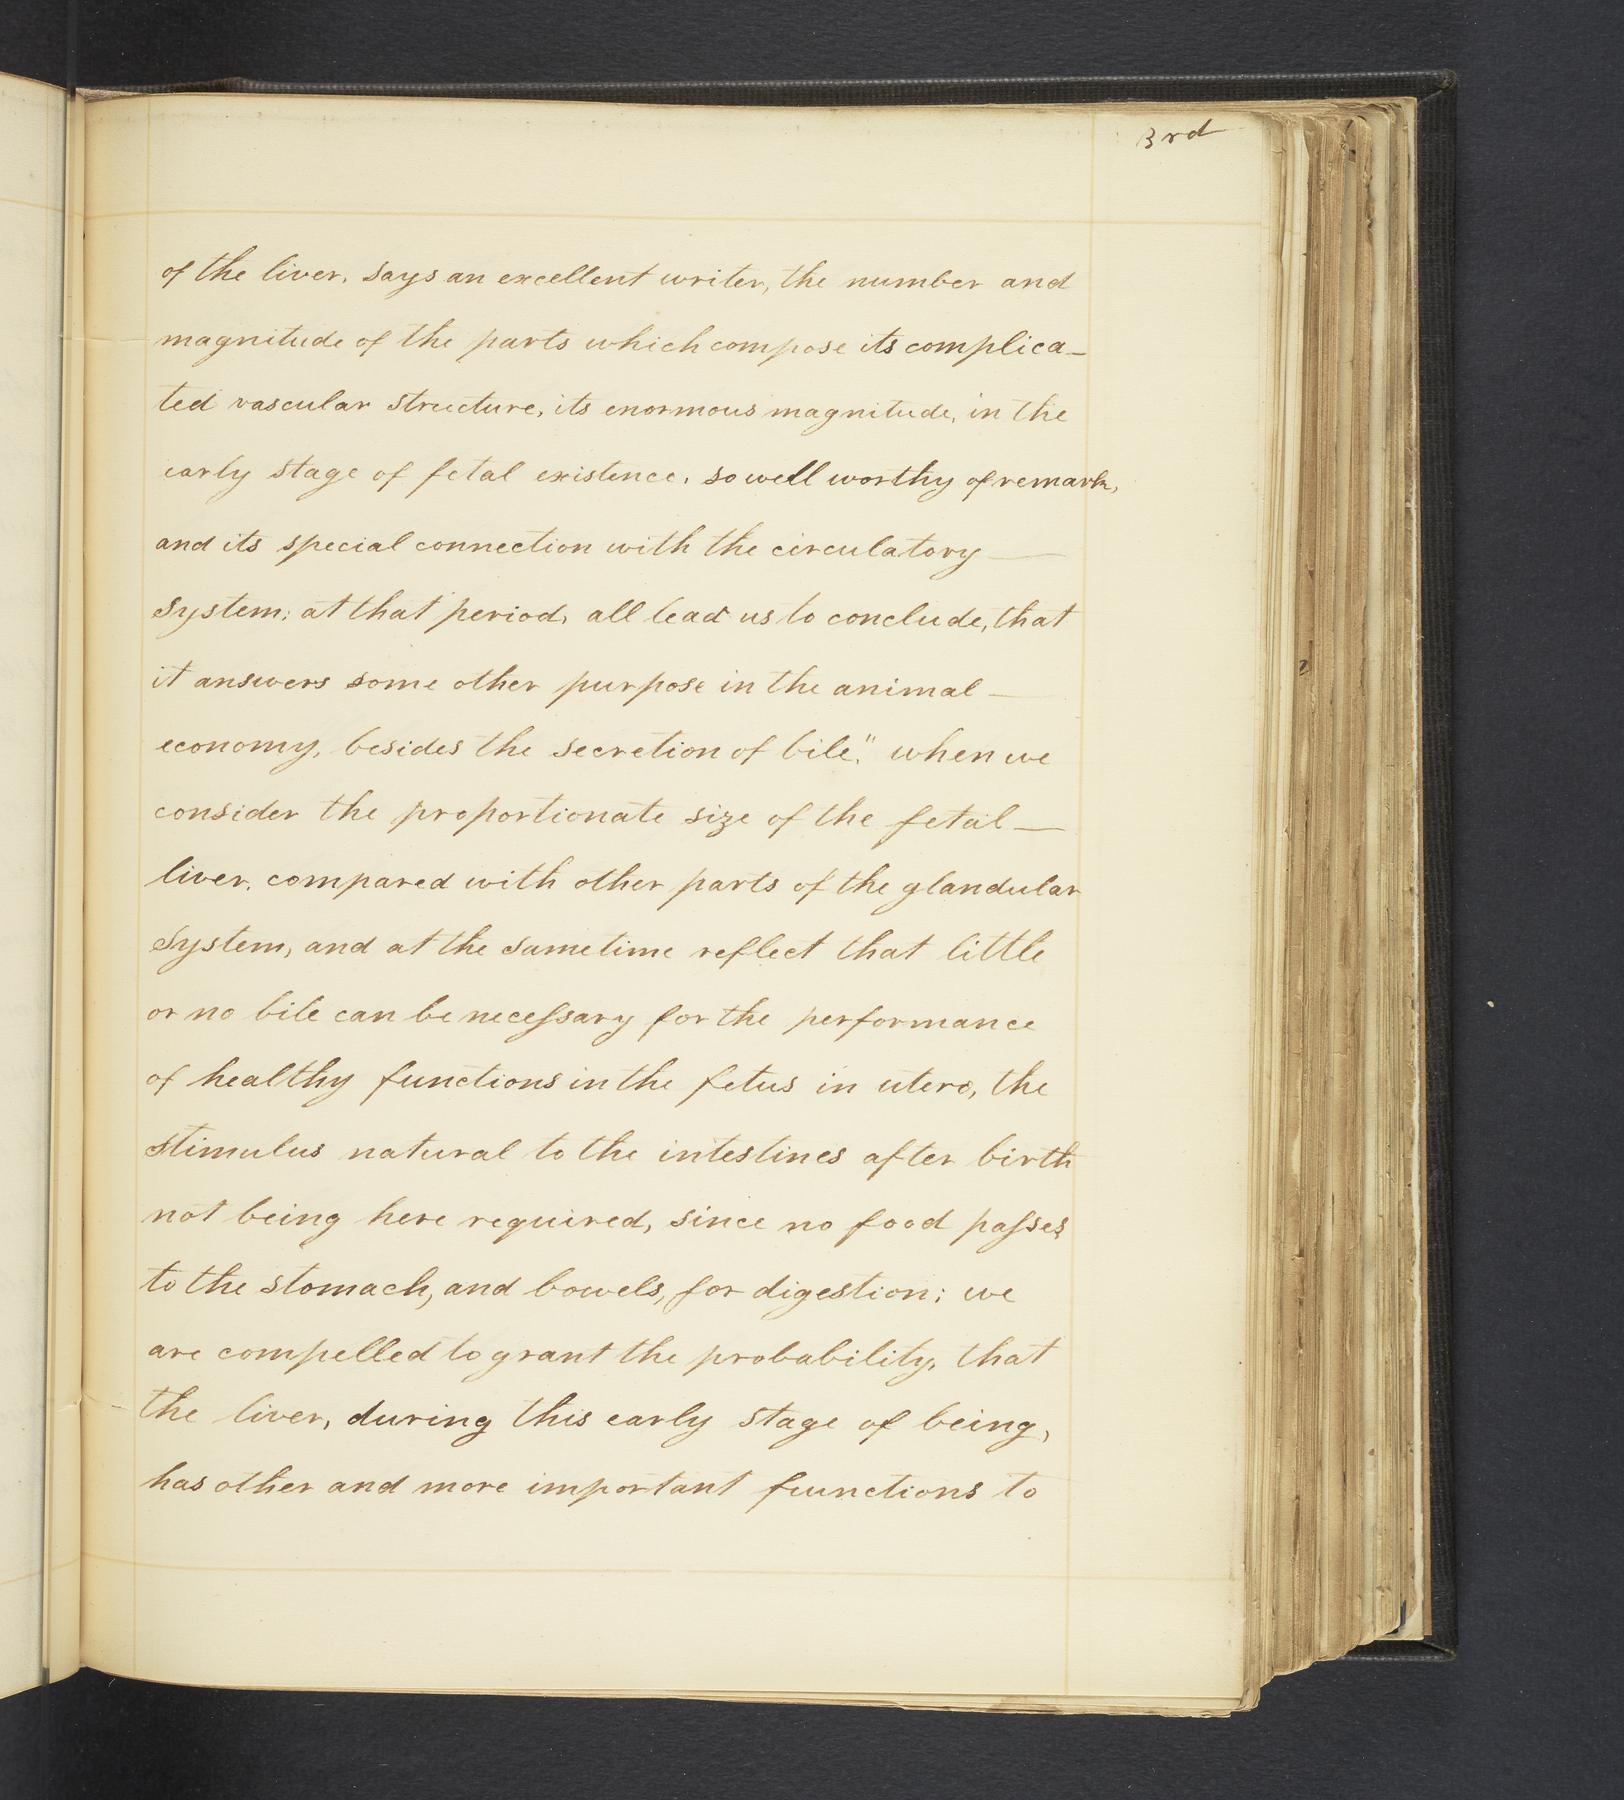 3rd
of the liver, says an excellent writer, the number and
magnitude of the parts which compose its complica-
ted vascular structure, its enormous magnitude, in the
early stage of fetal existence, so well worthy of remark,
and its special connection with the circulatory —
system; at that period, all lead us to conclude, that
it answers some other purpose in the animal —
economy, besides the secretion of bile." when we
consider the proportionate size of the fetal —
liver, compared with other parts of the glandular
system, and at the sametime reflect that little
or no bile can be neceſsary for the performance
of healthy functions in the fetus in utero, the
stimulus natural to the intestines after birth
not being here required, since no food paſses
to the stomach, and bowels, for digestion; we
are compelled to grant the probability, that
the liver, during this early stage of being,
has other and more important functions to